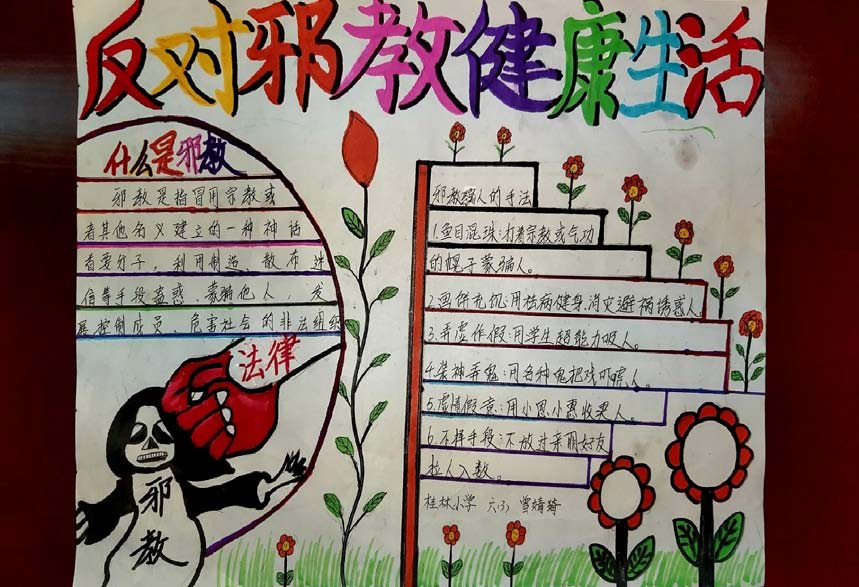 反对邪教健康生活
什么是邪教
邪教是指冒用宗教或
者其他名义建立的一种神话
首要分子，利用制造、散布迷
信等手段蛊惑、蒙骗他人，发
展控制成员、危害社会的非法组织
法律
邪教
邪教骗人的手法
1.鱼目混珠:打着宗教或气功
的幌子蒙骗人。
2.画饼充饥:用祛病健身、消灾避祸诱惑人
3.弄虚作假:用学生超能力吸人。
4.装神弄鬼:用各种鬼把戏吓唬人。
5.虚情假意:用小恩小惠收买人。
6.不择手段:不放过亲朋好友
拉人入数。
桂林小学 六(3) 雪婧琦